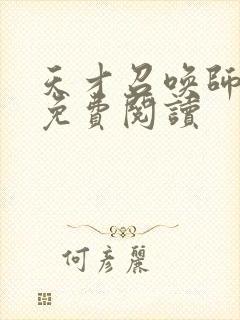 天才召喚師
免費閱讀
何彥麗